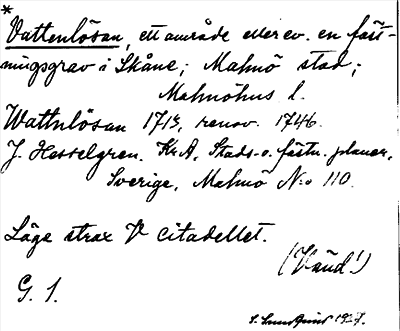 *
Vattenlösan, ett område eller ev. en fäst-
ningsgrav i Skåne; Malmö stad;
Malmöhus l.
Wattnlösan 1713, renov. 1746.
J. Hesselgren. Kr.A. Stads-o. fästn. planer,
Sverige, Malmö N:o 110.
Läge strax V citadellet.
(Vänd!)
G. S.
1927.